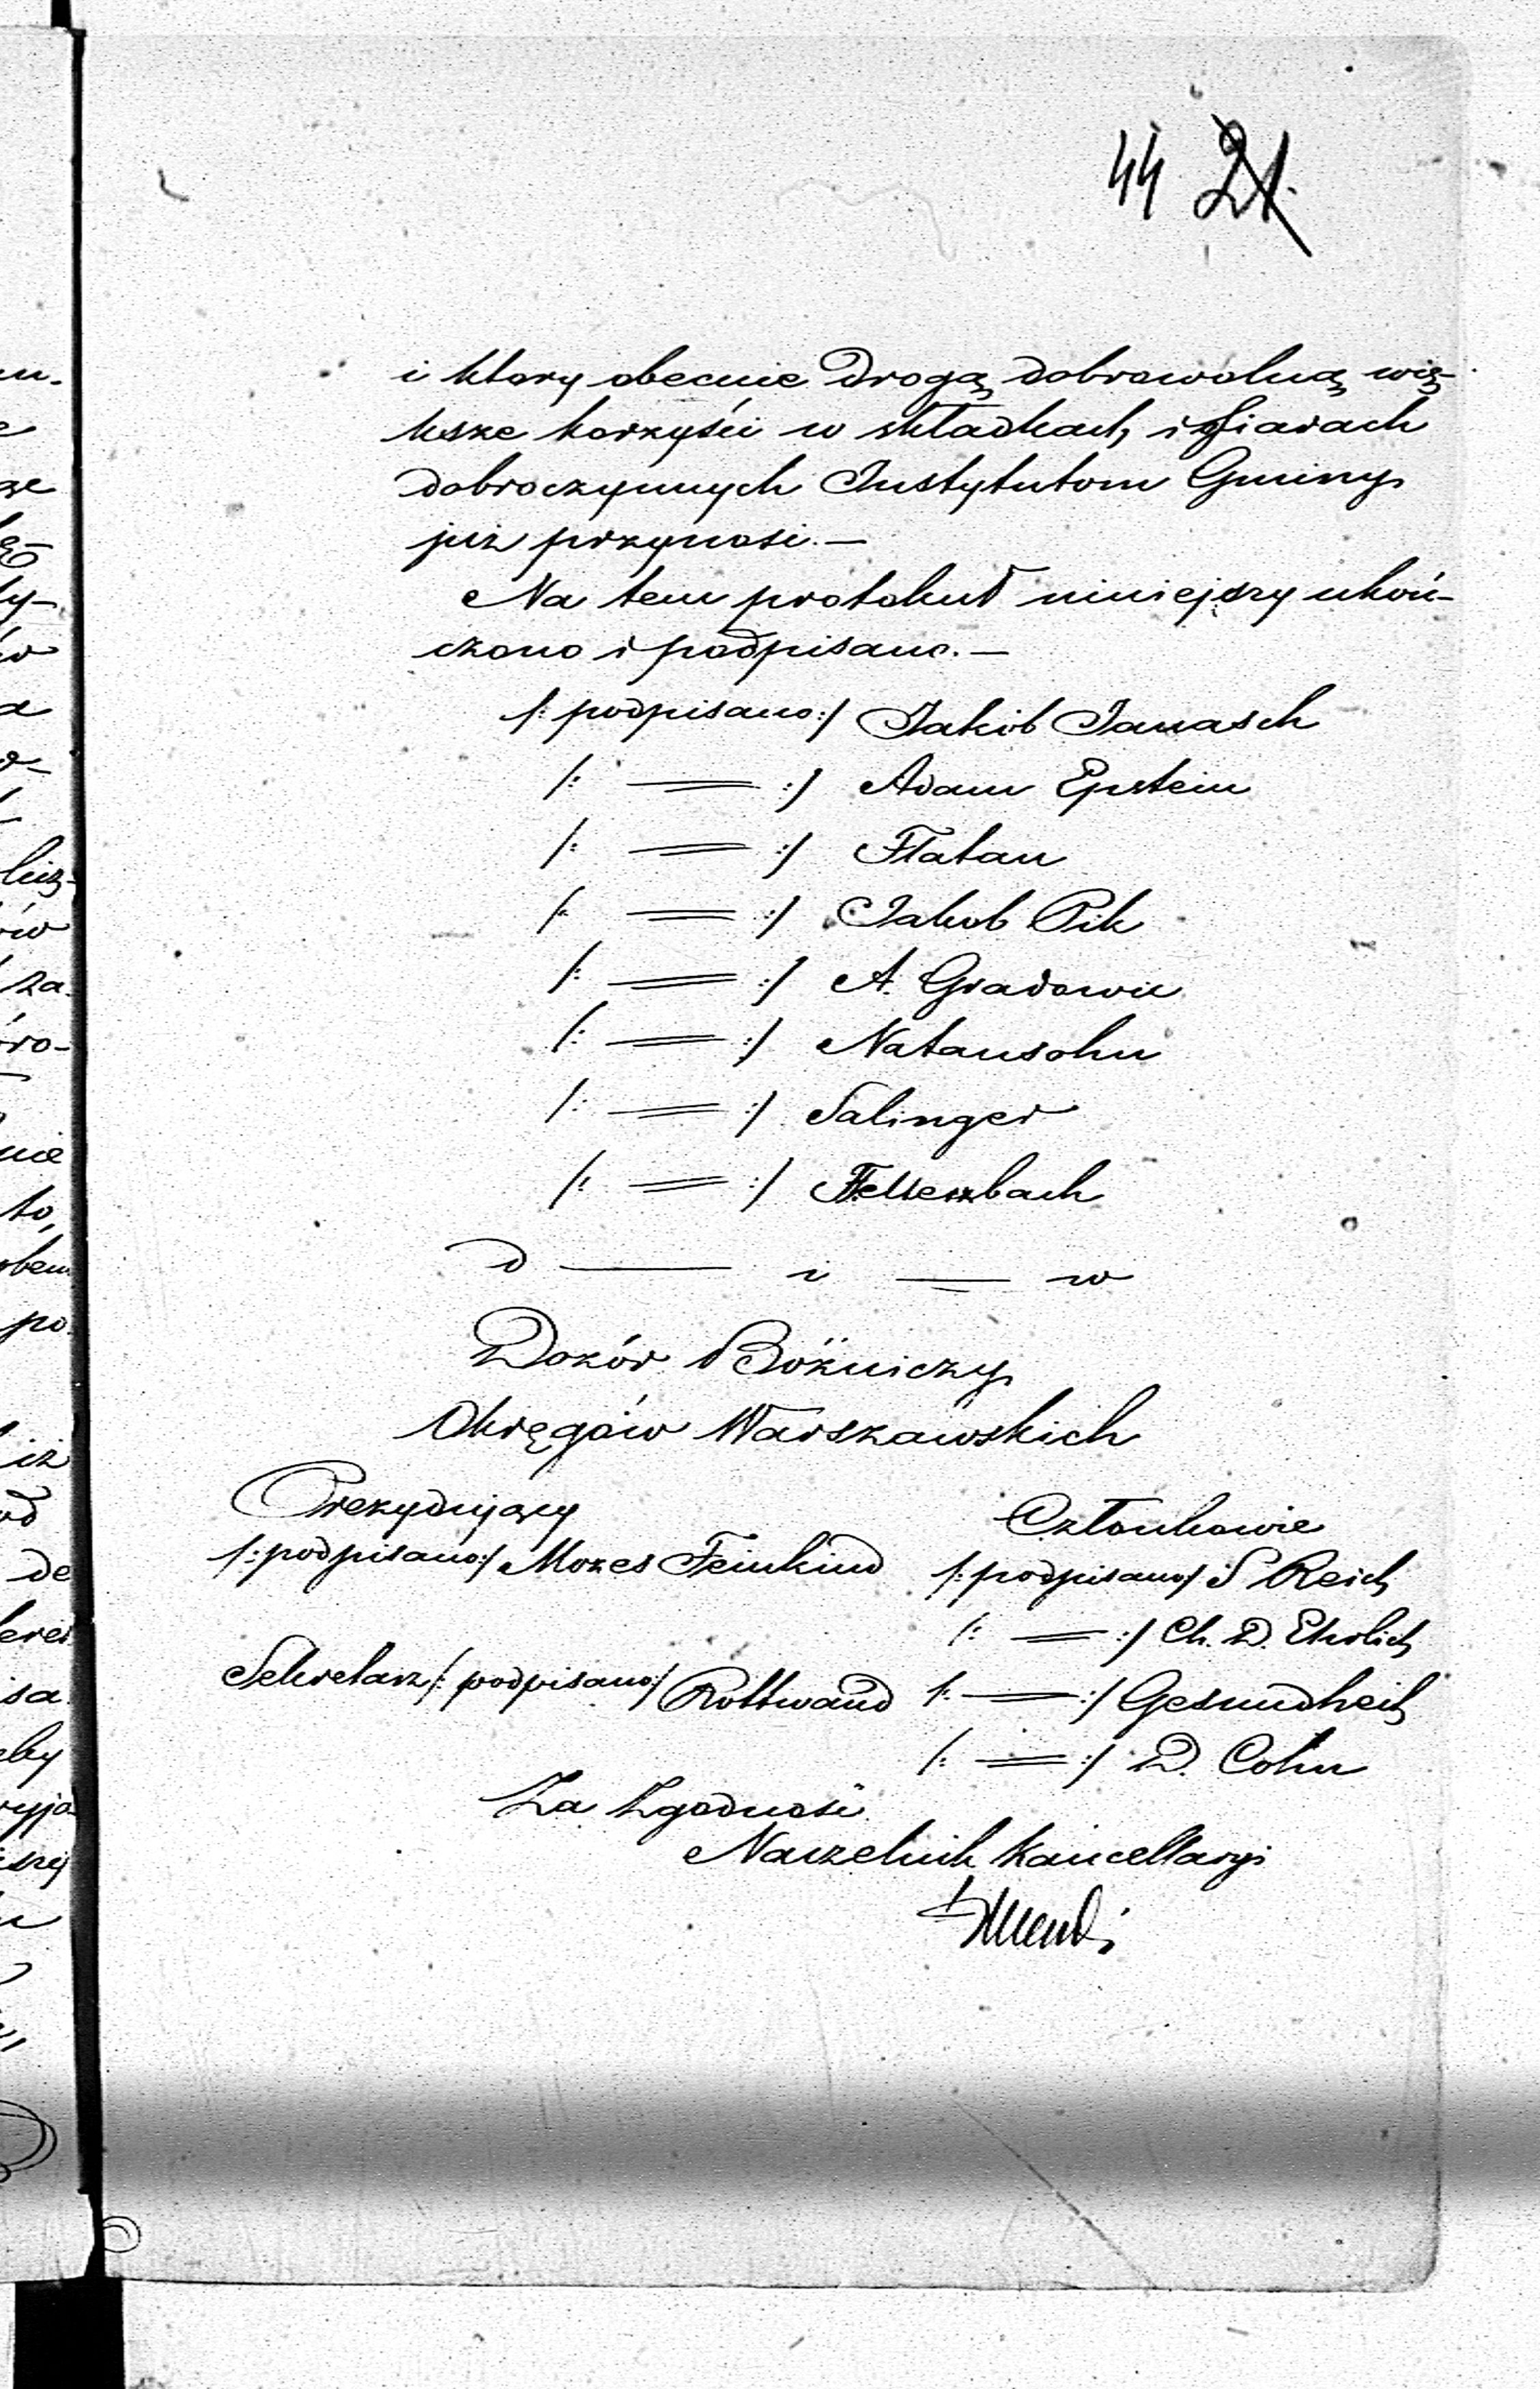 44 21.
i ktory obecnie drogą dobrowolną wię-
ksze korzyści w składkach i ofiarach
dobroczynnych Instytutom Gminy
już przynosi. —
Na tem protokuł niniejszy ukoń-
czono i podpisano. —
/: podpisano :/ Jakób Janasch
/: = :/ Adam Epstein
/: = :/ Flatau
/: = :/ Jakob Pik
/: = :/ A. Gradowic
/: = :/ Natansohn
/: = :/ Salinger
/: = :/
d — i = w
Dozór Bóżniczy
Okręgów Warszawskich
Prezydujący
Członkowie
/: podpisano :/ Mozes Feinkind
/: podpisano :/ S Reich
/: = :/ Ch. D. Ehrlich
Sekretarz /: podpisano :/ Rottwand
/: = :/ Gesundheit
/: = :/ D. Cohn
Za Zgodność
Naczelnik Kancellaryi